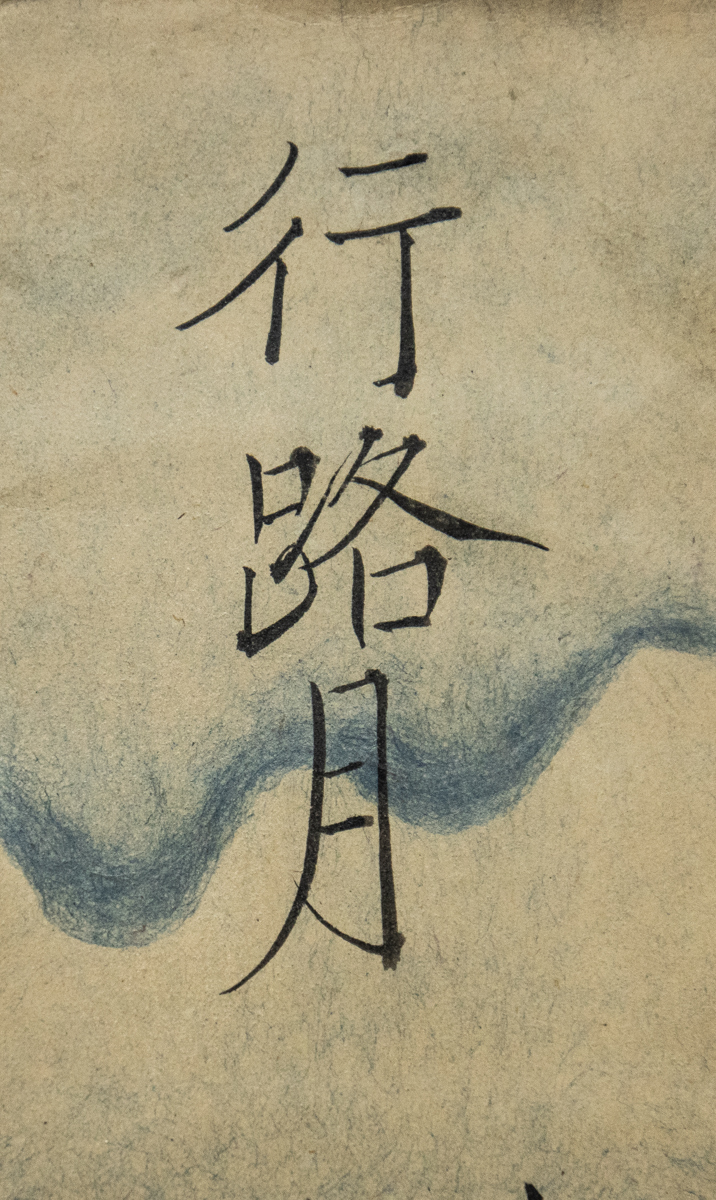 行路月